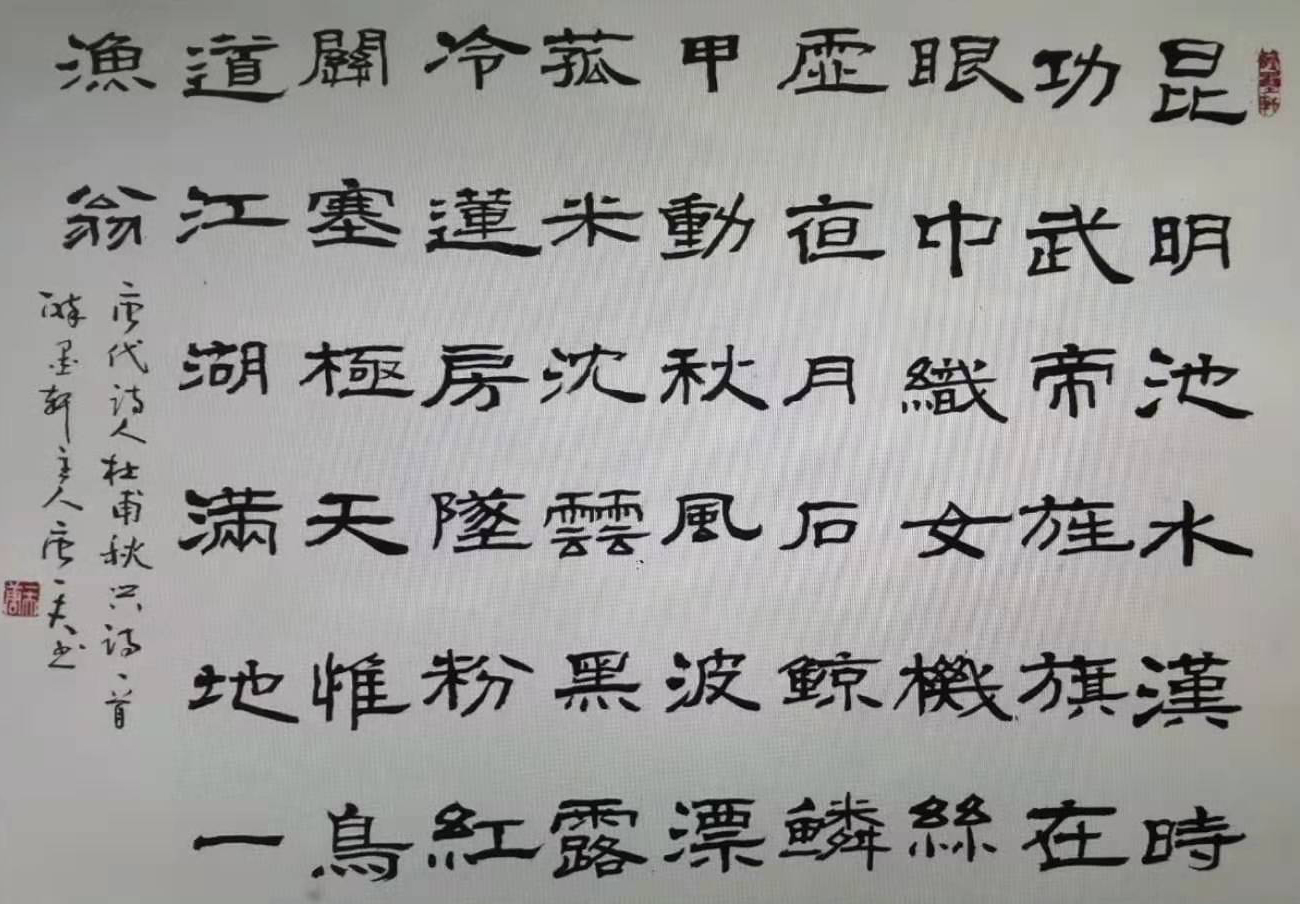 昆明池水漢時
功武帝旌旗在
眼中織女機絲
虛夜月石鱗鱗
甲動秋風波漂
菰米沈雲黑露
冷蓮房墜粉紅
關塞極天惟鳥
道江湖滿地一
漁翁
唐代詩人杜甫秋兴詩一首
墨軒主人唐一夫书